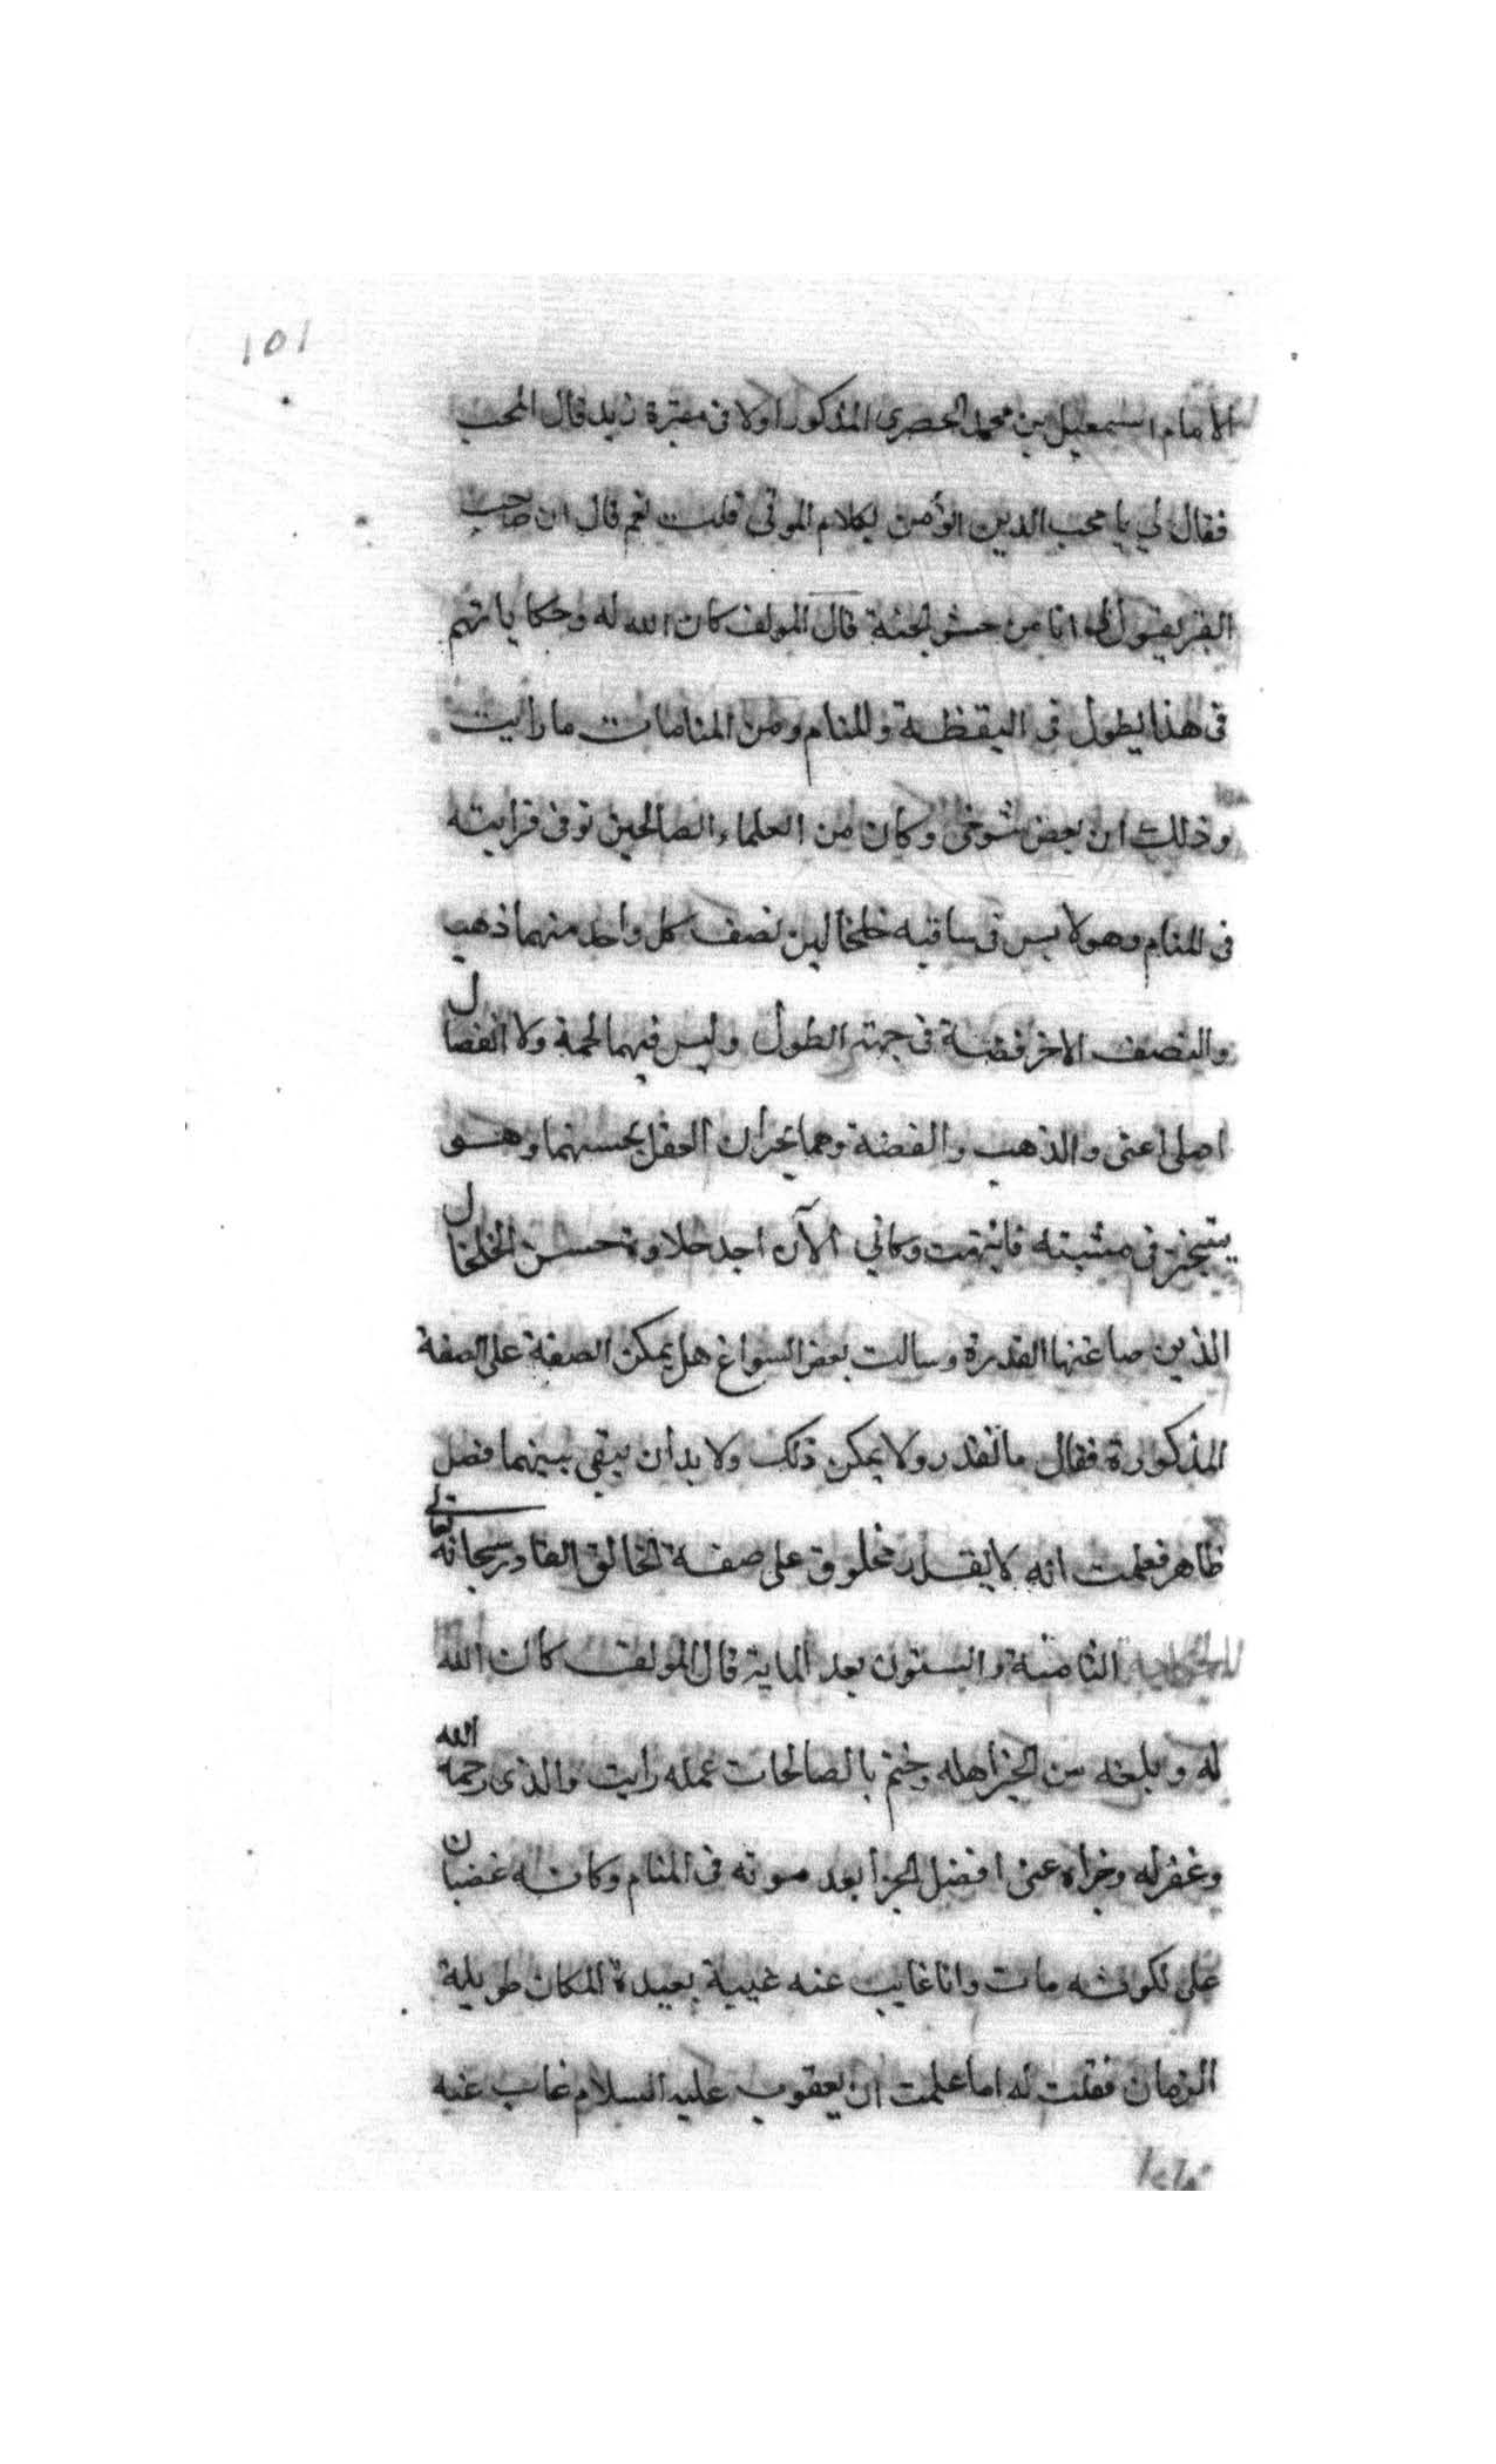 ١٥١
الامام اسمعيل بن محمد الحصرى المذكور اولا فى مقبرة زبيد قال المحب
فقال لي يا محب الدين اتؤمن لكلام الموتى قلت نعم قال ان صاحب
القبر يقول لى انا من حشو الجنة قال المولف كان الله له وحكاياتهم
فى هذا يطول فى اليقظة والمنام ومن المنامات ما رايت
وذلك ان بعض شوخى وكان من العلماء الصالحين توفى فرايته
فى المنام وهو لابس فى ساقيه خلخالين نصف كل واحد منهما ذهب
والنصف الاخر فضة فى جهة الطول وليس فيهما لحمة ولا انفصال
اصلى اعنى والذهب والفضة وهما يحران العقل بحسنهما وهو
يتبختر فى مشيته فانتبهت وكاني الآن اجد حلاوة حسن الخلخال
الذين صاغتها القدرة وسالت بعض السواغ هل يمكن الصفة على الصفة
المذكورة فقال ما نقدر ولا يمكن ذلك ولا بد ان يبقى بينهما فصل
ظاهر فعلمت انه لا يقدر مخلوق على صفة الخالق القادر سبحانه تعالى
الحكاية الثامنة والستون بعد الماية قال المولف كان الله
له وبلغه من الخير اهله وختم بالصالحات عمله رايت والدى رحمه الله
وغفر له وجزاه عنى افضل الجزا بعد موته فى المنام وكانه غضبان
على لكونه مات وانا غايب عنه غيبة بعيدة المكان طويلة
الزمان فقلت له اما علمت ان يعقوب عليه السلام غاب عنه